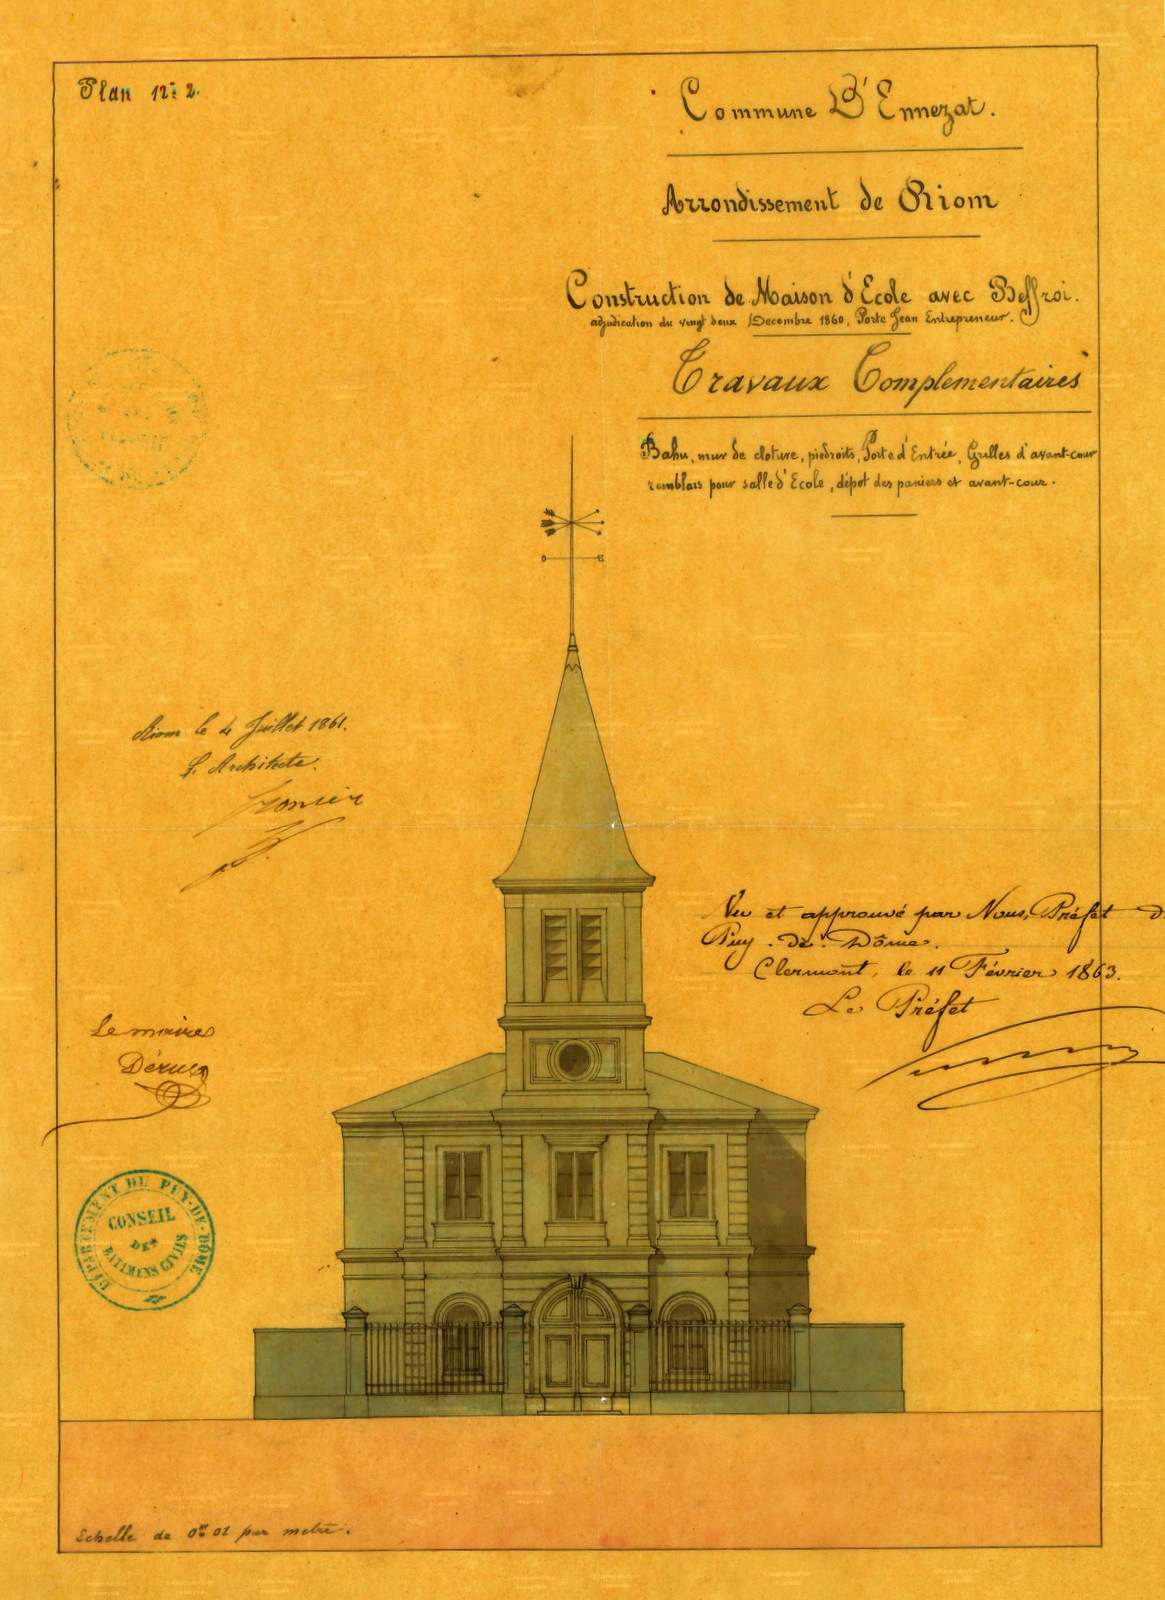 Plan N° 2.
Commune D'Ennezat.
Arrondissement de Riom
Construction de Maison d'Ecole avec Beffroi.
adjudication du vingt deux Decembre 1860, Porte Jean Entrepreneur.
Travaux Complementaires
Bahu, mur de cloture, piedroits, Porte d'Entrée, Grilles d'avant-cour
remblais pour salle d'Ecole, dépot des paniers et avant-cour.
Riom le 4 Juillet 1861.
L'Architecte.
Vu et approuvé par Nous, Préfet d
Puy-de-Dôme.
Clermont, le 11 Février 1863.
Le Préfet
Le maire
DÉPARTEMENT DU PUY-DE-DÔME
CONSEIL
DES
BATIMENS CIVILS
Echelle de 0m 01 par metre.